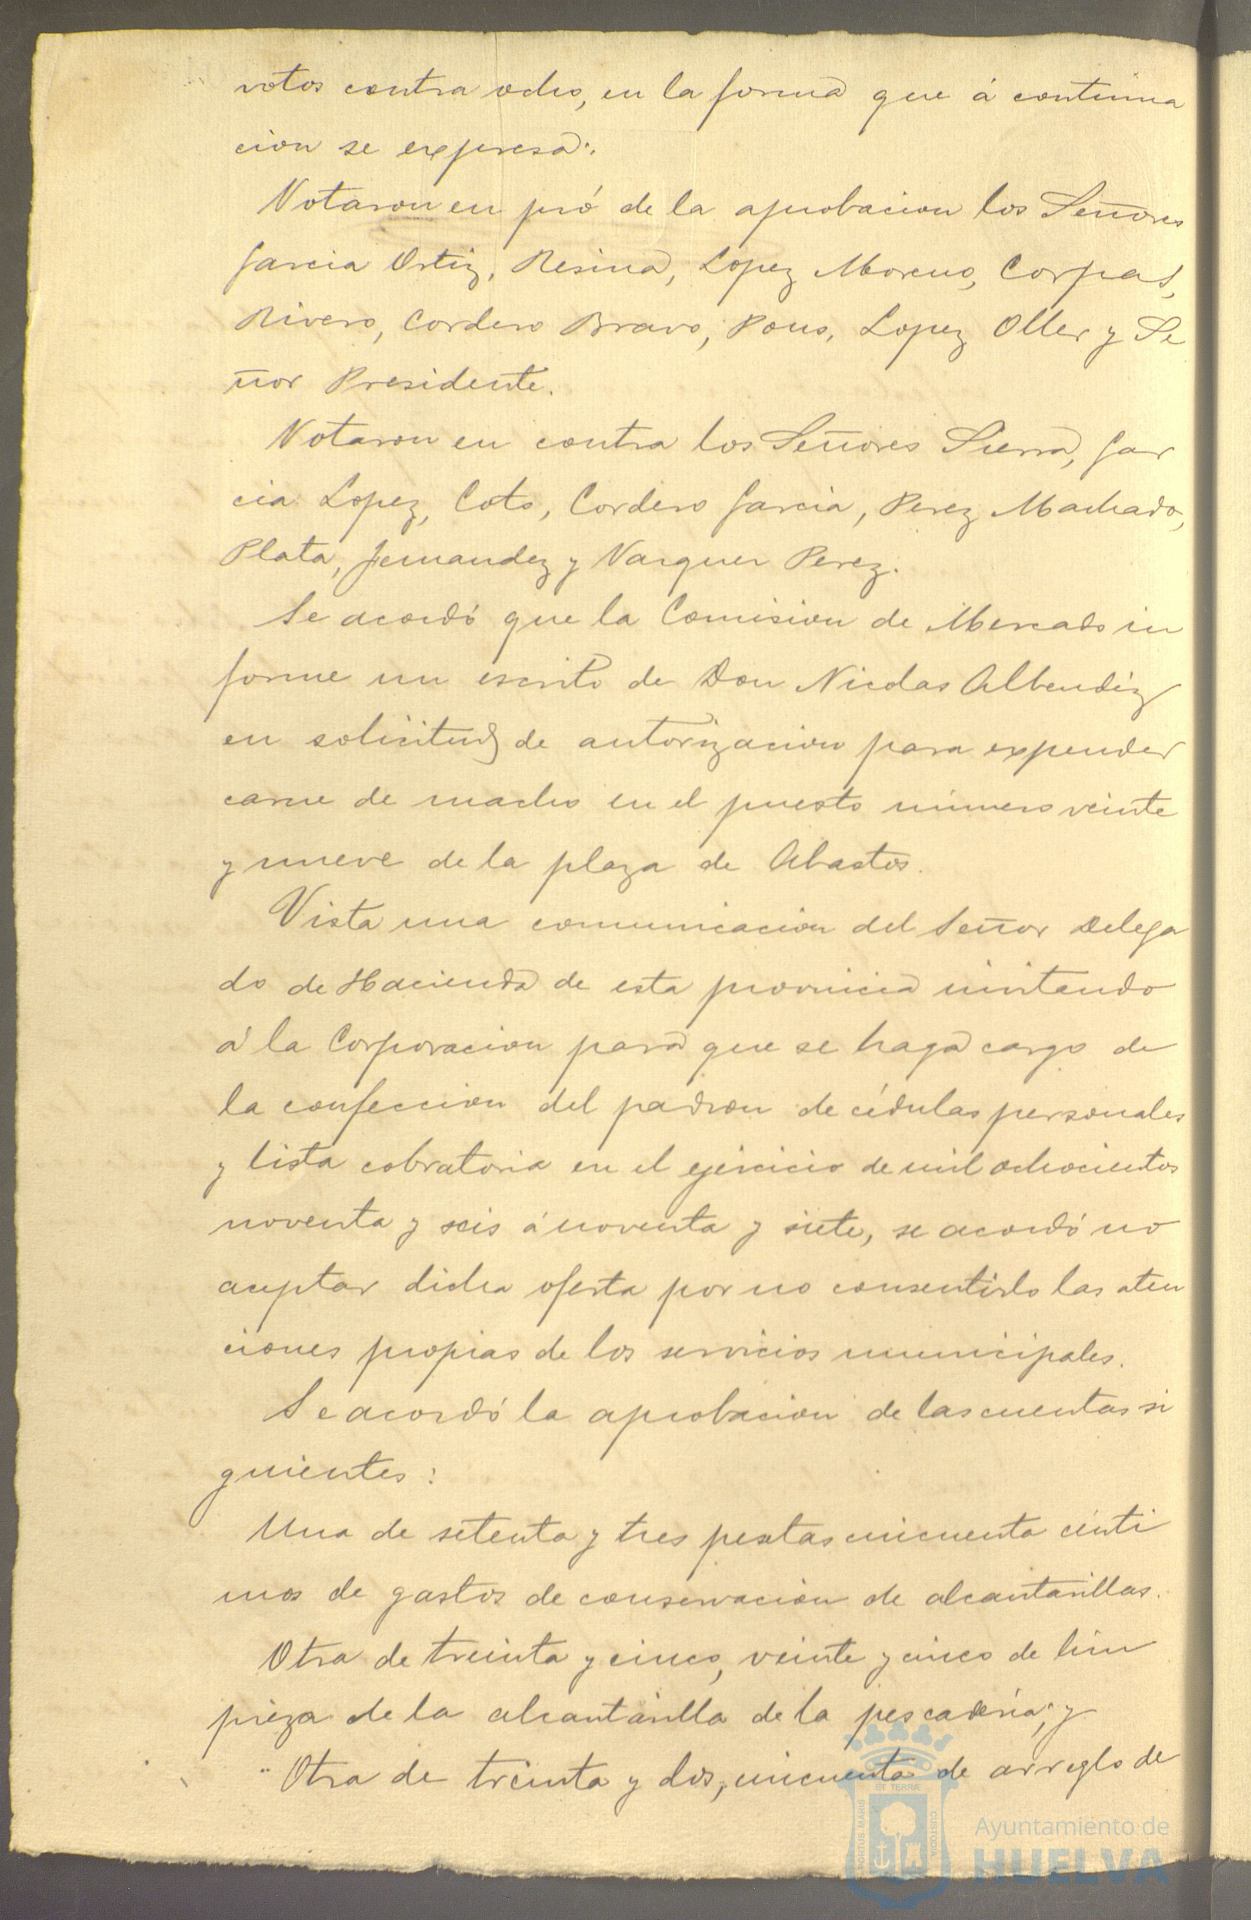 votos contra ocho, en la forma que á continua
cion se expresa:
Votaron en pró de la aprobacion los Señores
Garcia Ortiz, Resina, Lopez Moreno, Corpas,
Rivero, Cordero Bravo, Pous, Lopez Oller y Se
ñor Presidente.
Votaron en contra los Señores Sierra, Gar
cia Lopez, Coto, Cordero Garcia, Perez Machado,
Plata, Fernandez y Vazquez Perez.
Se acordó que la Comision de Mercado in
forme un escrito de Don Nicolas Albendiz
en solicitud de autorizacion para expender
carne de macho en el puesto número veinte
y nueve de la plaza de Abastos.
Vista una comunicacion del Señor Delega
do de Hacienda de esta provincia invitando
á la Corporacion para que se haga cargo de
la confeccion del padron de cédulas personales
y lista cobratoria en el ejercicio de mil ochocientos
noventa y seis á noventa y siete, se acordó no
aceptar dicha oferta por no consentirlo las aten
ciones propias de los servicios municipales.
Se acordó la aprobacion de las cuentas si
guientes:
Una de setenta y tres pesetas cincuenta centi
mos de gastos de conservacion de alcantarillas.
Otra de treinta y cinco, veinte y cinco de lim
pieza de la alcantarilla de la pescaderia; y
Otra de treinta y dos, cincuenta de arreglo de
PORTUS MARIS ET TERRÆ CUSTODIA
Ayuntamiento de
HUELVA